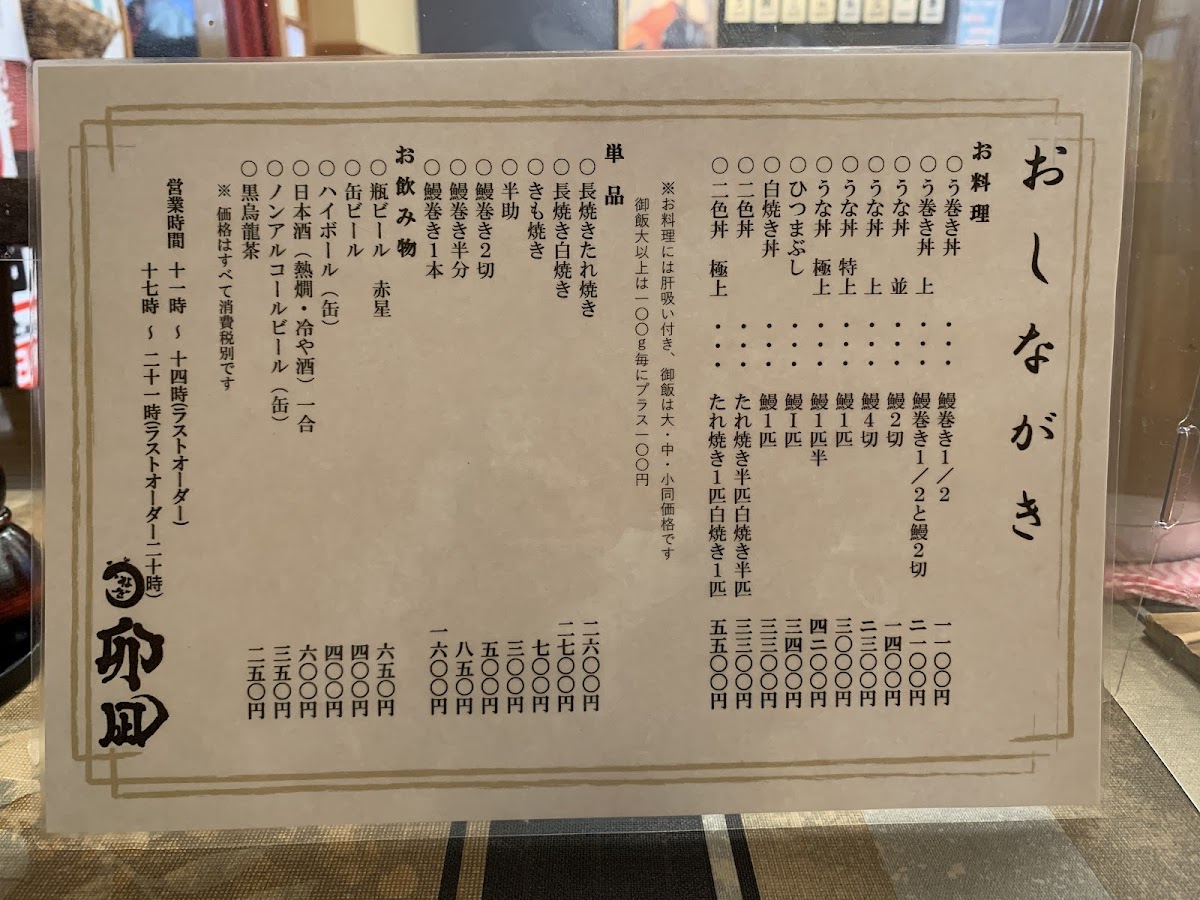 おしながき
お料理
○うな巻き丼 ・・・ 鰻巻き１／２ 一一〇〇円
○うな巻き丼 上 ・・・ 鰻巻き１／２と鰻２切 二一〇〇円
○うな丼 並 ・・・ 鰻２切 一四〇〇円
○うな丼 上 ・・・ 鰻４切 二三〇〇円
○うな丼 特上 ・・・ 鰻１匹 三〇〇〇円
○うな丼 極上 ・・・ 鰻１匹半 四二〇〇円
○ひつまぶし ・・・ 鰻１匹 三四〇〇円
○白焼き丼 ・・・ 鰻１匹 三三〇〇円
○二色丼 ・・・ たれ焼き半匹白焼き半匹 三三〇〇円
○二色丼 極上 ・・・ たれ焼き１匹白焼き１匹 五五〇〇円
※お料理には肝吸い付き、御飯は大・中・小同価格です
御飯大以上は一〇〇ｇ毎にプラス一〇〇円
単品
○長焼きたれ焼き 二六〇〇円
○長焼き白焼き 二七〇〇円
○きも焼き 七〇〇円
○半助 三〇〇円
○鰻巻き２切 五〇〇円
○鰻巻き半分 八五〇円
○鰻巻き１本 一六〇〇円
お飲み物
○瓶ビール 赤星 六五〇円
○缶ビール 四〇〇円
○ハイボール（缶） 四〇〇円
○日本酒（熱燗・冷や酒）一合 六〇〇円
○ノンアルコールビール（缶） 三五〇円
○黒烏龍茶 二五〇円
※ 価格はすべて消費税別です
営業時間 十一時 ～ 十四時(ラストオーダー)
十七時 ～ 二十一時(ラストオーダー二十時)